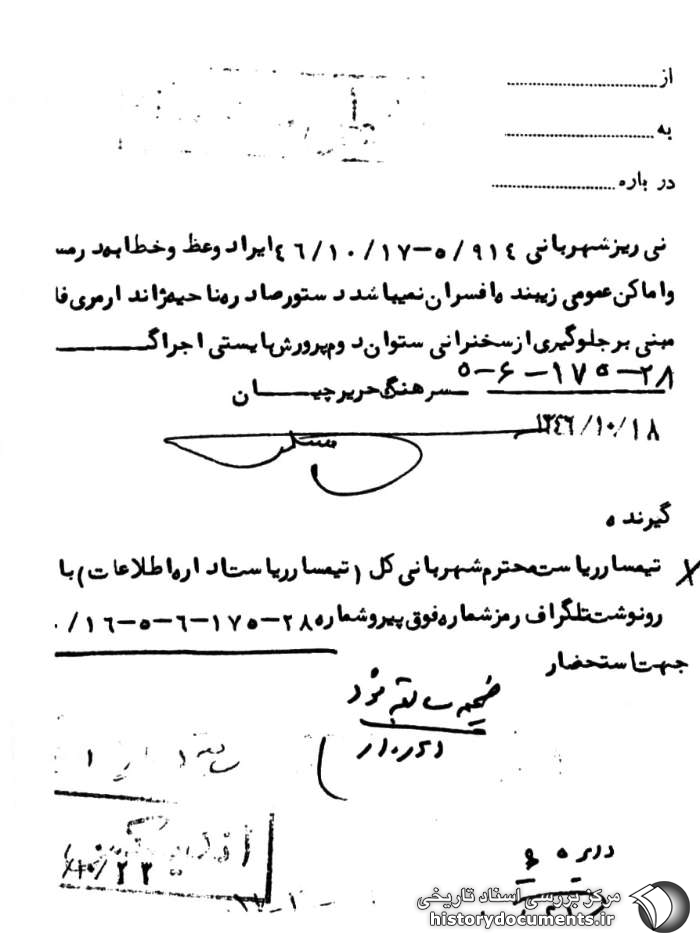 از
به
در باره
نی ریز شهربانی ۹۱۴/۵-۴۶/۱۰/۱۷ ایراد وعظ و خطابه در مس
واماکن عمومی زیبنده افسران نمیباشد دستور صادره ناحیه ژاندارمری فا
مبنی بر جلوگیری از سخنرانی ستوان دوم پرورش بایستی اجرا گ
۲۸-۱۷۵-۶-۵ سرهنگ حریرچیان
۱۳۴۶/۱۰/۱۸
گیرنده
تیمسار ریاست محترم شهربانی کل (تیمسار ریاست اداره اطلاعات) با
رونوشت تلگراف رمز شماره فوق پیرو شماره ۲۸-۱۷۵-۶-۵-۱۶/۰
جهت استحضار
ضمیمه سابقه شود
۱۰/۲۳
مرکز بررسی اسناد تاریخی
historydocuments.ir